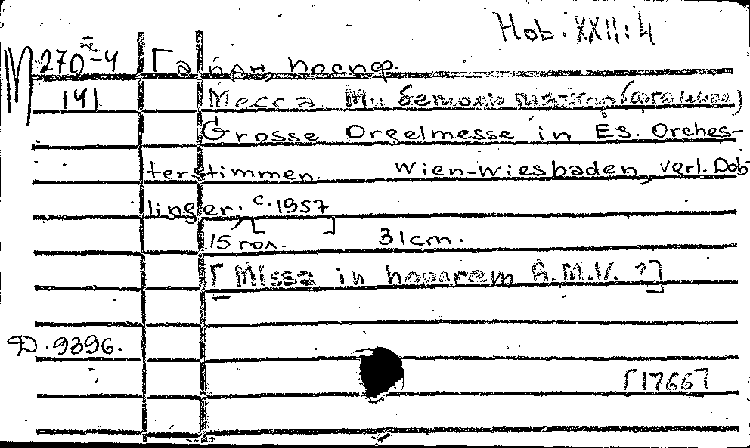 Hob. XXII:4
М 270-4 Гайдн, Йосиф.
141 Месса Ми бемоль мажор (органная)
Grosse Orgelmesse in Es. Orches-
terstimmen. Wien-Wiesbaden, Verl. Dob
linger. c. 1957
15 гол. 31 cm.
[Missa in honorem B.M.V. ]
D. 9396.
[1766]